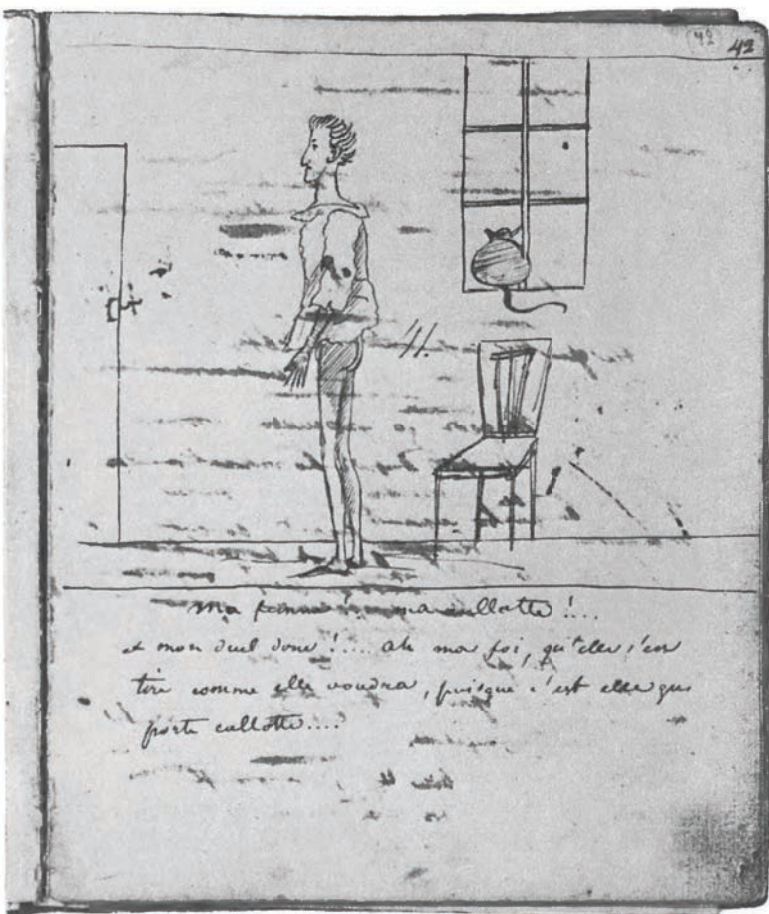 (42) 42
Ma femme !... ma cullotte !...
et mon duel donc !.... ah ma foi, qu'elle s'en
tire comme elle voudra, puisque c'est elle qui
porte cullotte....